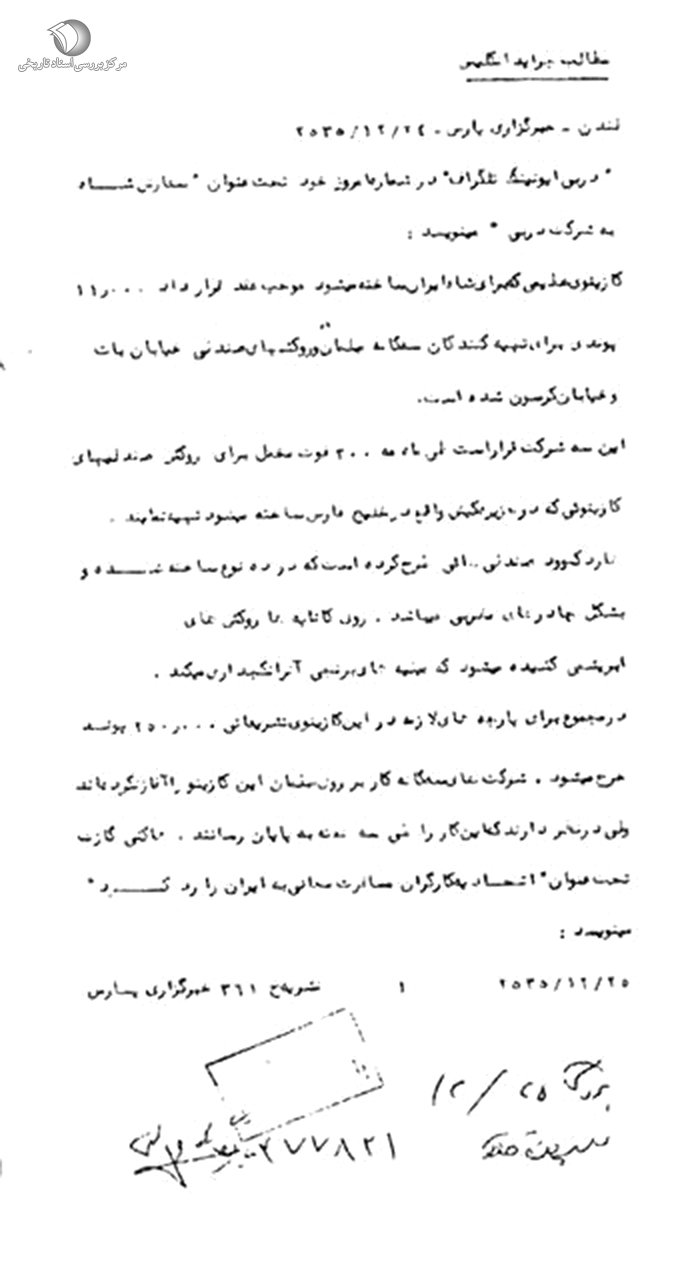 مرکز بررسی اسناد تاریخی
مطالب جراید انگلیس
لندن - خبرگزاری پارس - ۲۵۳۵/۱۲/۲۴
" دربی ایونینگ تلگراف" در شماره امروز خود تحت عنوان " سفارش شاه
به شرکت دربی " مینویسد :
کازینوی عظیمی که برای شاه ایران ساخته میشود موجب عقد قرار داد ۱۱٫۰۰۰
پوندی برای تهیه کنندگان سه گانه مبلمان و روکشهای صندلی خیابان بات
و خیابان کرسون شده است.
این سه شرکت قرار است طی ماه مه ۲۰۰ فوت مخمل برای روکش صندلیهای
کازینوئی که در جزیره کیش واقع در خلیج فارس ساخته میشود تهیه نمایند .
صندلی هائی طرح کرده است که در ده نوع ساخته شده و
بشکل چادر های میباشد . روی کاناپه ها روکش های
ابریشمی کشیده میشود که های برنجی آنرا نگهداری میکند .
در مجموع برای پارچه های لازمه در این کازینوی تشریفاتی ۲۵۰٫۰۰۰ پوند
خرج میشود . شرکت های سه گانه کار بر روی مبلمان این کازینو را آغاز نکرده اند
ولی در نظر دارند که این کار را طی سه هفته به پایان رسانند . گازت
تحت عنوان " اتحادیه کارگران مسافرت مجانی به ایران را رد کرد "
مینویسد :
۲۵۳۵/۱۲/۲۵ ۱ نشریه ح ۳۶۱ خبرگزاری پارس
۱۲/۲۵
۲۷۷۸۲۱